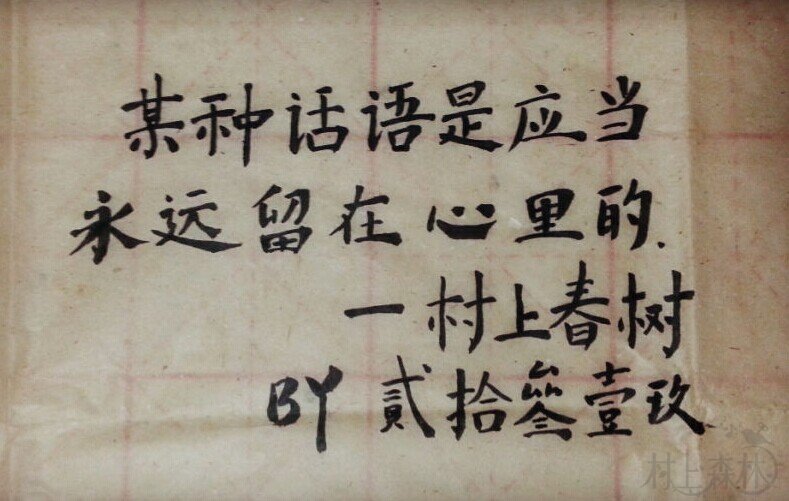 某种话语是应当
永远留在心里的.
一村上春树
BY 貳拾叄壹玖
村上森林